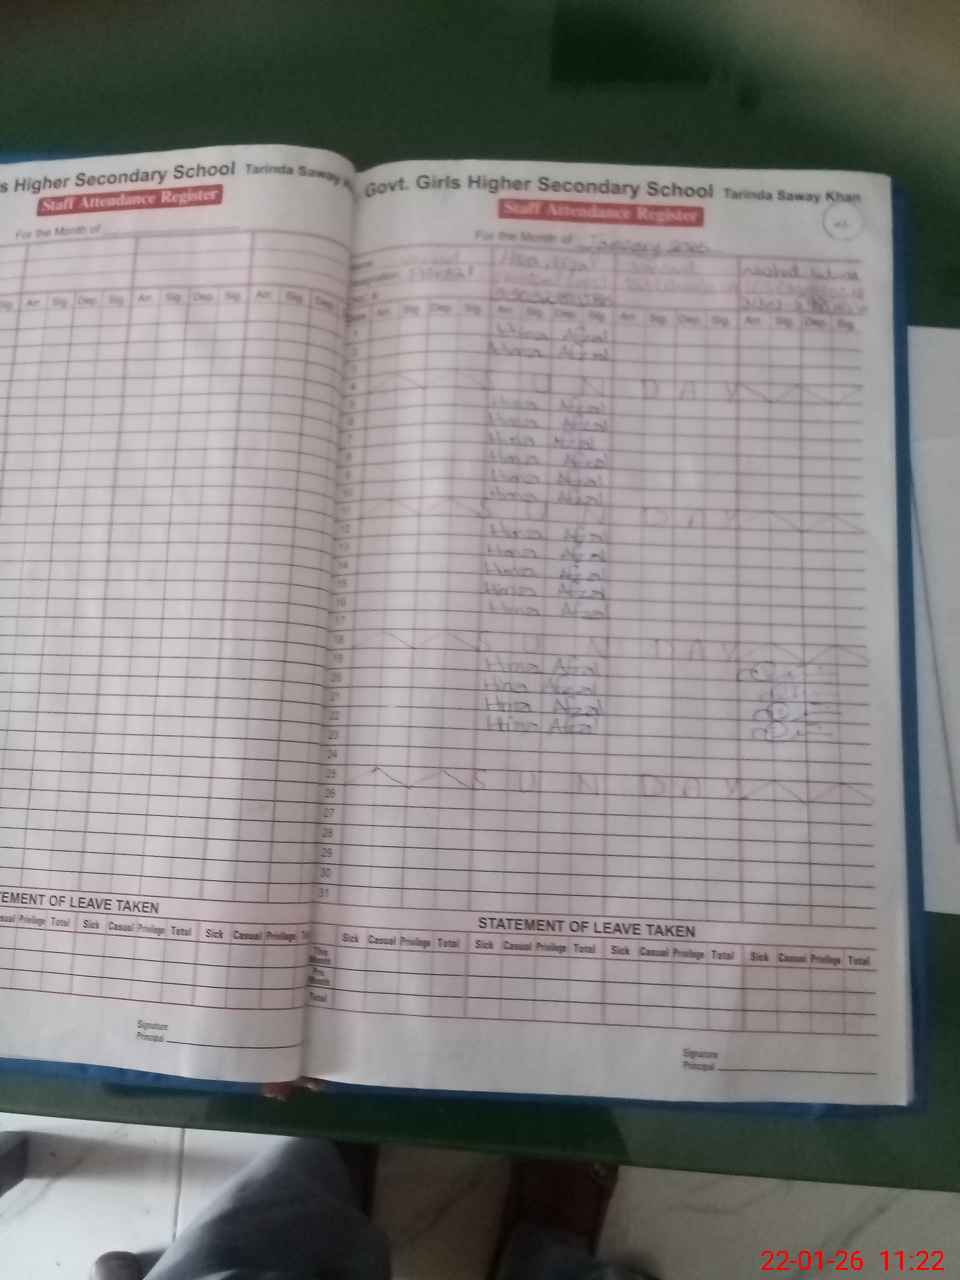 s Higher Secondary School Tarinda Saway
Staff Attendance Register
For the Month of
Sig. Arr. Sig. Dep. Sig. Arr. Sig. Dep. Sig. Arr. Sig. Dep.
EMENT OF LEAVE TAKEN
Casual Privilege Total Sick Casual Privilege Total Sick Casual Privilege
Signature
Principal
Govt. Girls Higher Secondary School Tarinda Saway Khan
Staff Attendance Register
For the Month of January
Hina Afzal
Arr. Sig. Dep. Sig. Arr. Sig. Dep. Sig. Arr. Sig. Dep. Sig. Arr. Sig. Dep. Sig.
1 Hina Afzal
2 Hina Afzal
4 S U N D A Y
5 Hina Afzal
6 Hina Afzal
7 Hina Afzal
8 Hina Afzal
9 Hina Afzal
10 Hina Afzal
11 S U N D A Y
12 Hina Afzal
13 Hina Afzal
14 Hina Afzal
15 Hina Afzal
16 Hina Afzal
17
18 S U N D A Y
19 Hina Afzal
20 Hina Afzal
21 Hina Afzal
22 Hina Afzal
23
24
25 S U N D A Y
26
27
28
29
30
31
STATEMENT OF LEAVE TAKEN
Sick Casual Privilege Total Sick Casual Privilege Total Sick Casual Privilege Total Sick Casual Privilege Total
This Month
Pre. Month
Total
Signature
Principal
22-01-26 11:22